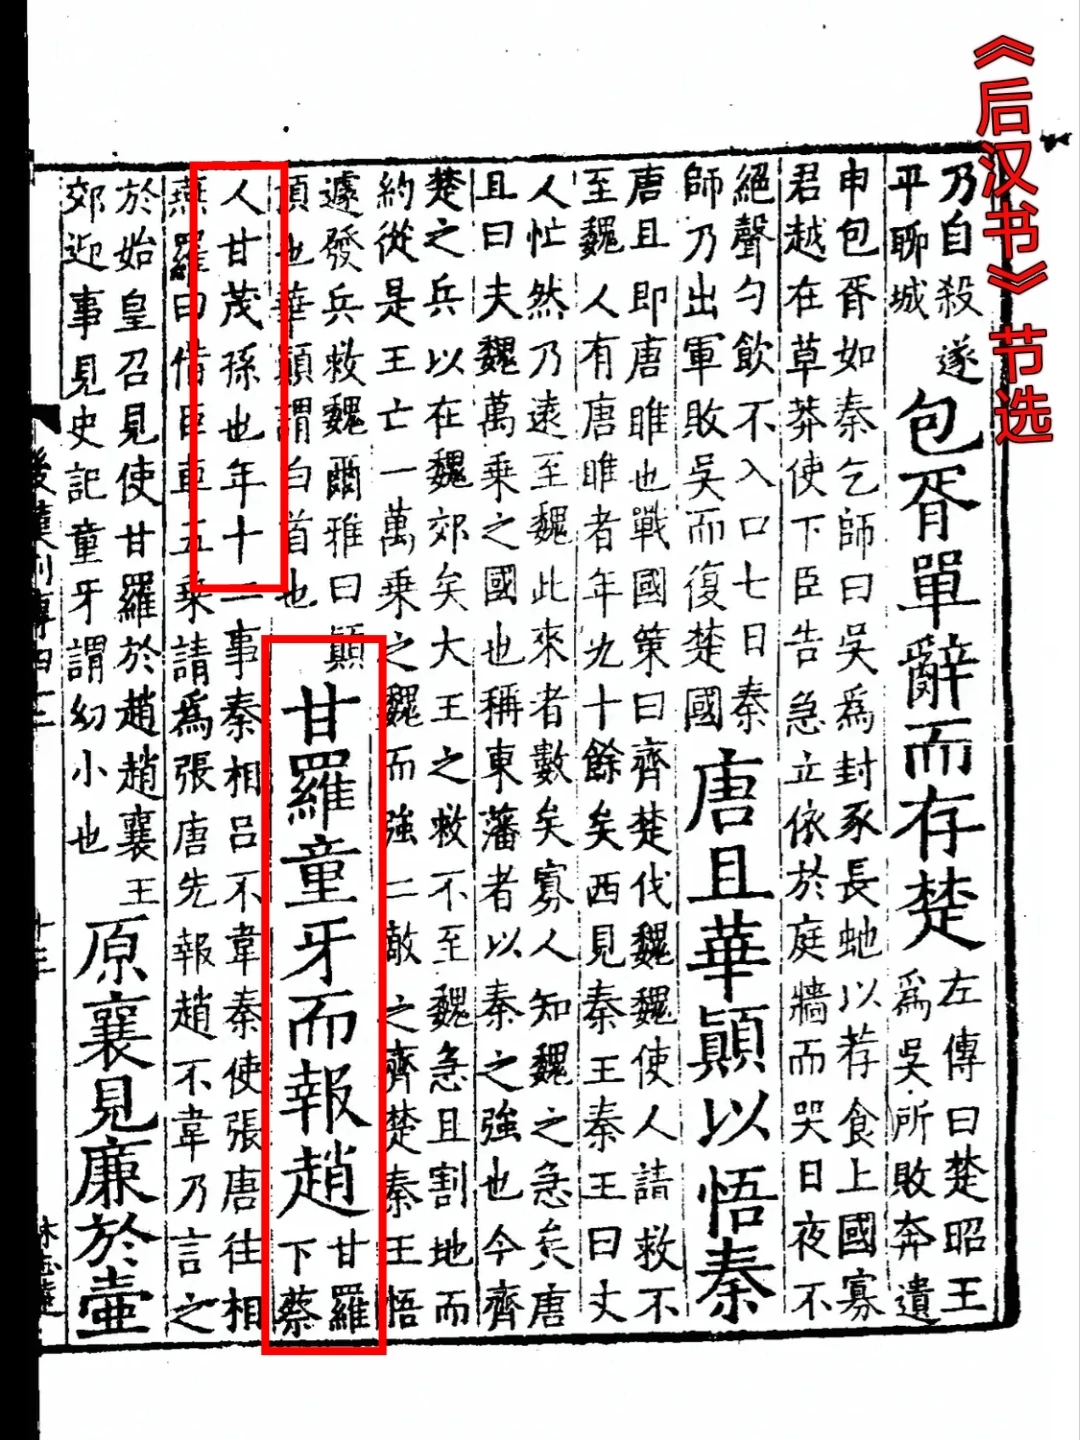 《后汉书》节选
乃自殺遂
平聊城
包胥單辭而存楚
左傳曰楚昭王
為吳所敗奔遺
申包胥如秦乞師曰吳為封豕長虵以荐食上國寡
君越在草莽使下臣告急立依於庭牆而哭日夜不
絕聲勺飲不入口七日秦
師乃出軍敗吳而復楚國
唐且華顛以悟秦
唐且即唐雎也戰國策曰齊楚伐魏魏使人請救不
至魏人有唐雎者年九十餘矣西見秦王秦王曰丈
人忙然乃遠至魏此來者數矣寡人知魏之急矣唐
且曰夫魏萬乘之國也稱東藩者以秦之強也今齊
楚之兵以在魏郊矣大王之救不至魏急且割地而
約從是王亡一萬乘之魏而強二敵之齊楚秦王悟
遽發兵救魏爾雅曰顛
頂也華顛謂白首也
甘羅童牙而報趙
甘羅
下蔡
人甘茂孫也年十二事秦相呂不韋秦使張唐往相
燕羅曰借臣車五乘請為張唐先報趙不韋乃言之
於始皇召見使甘羅於趙趙襄王
郊迎事見史記童牙謂幼小也
原襄見廉於壺